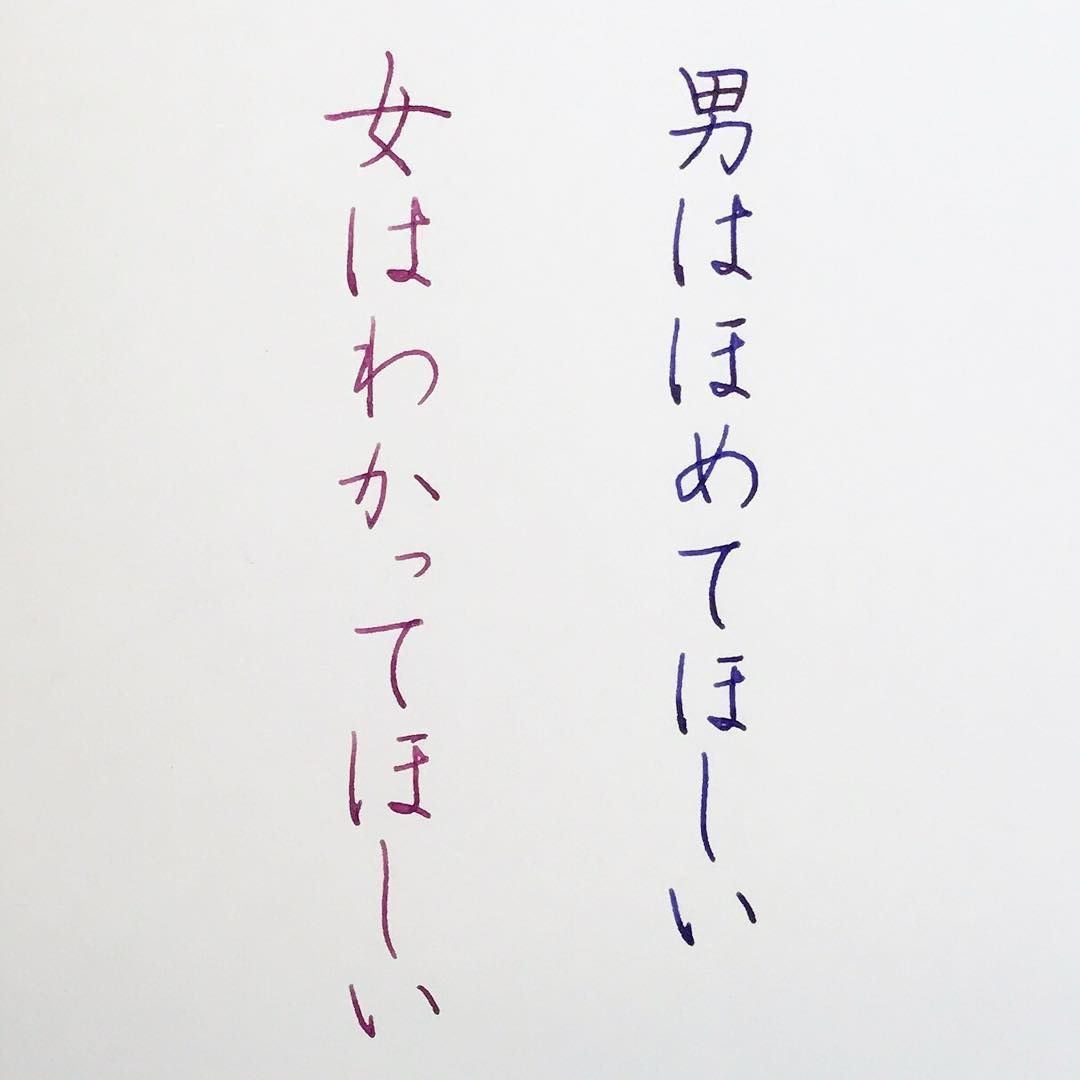 男はほめてほしい
女はわかってほしい